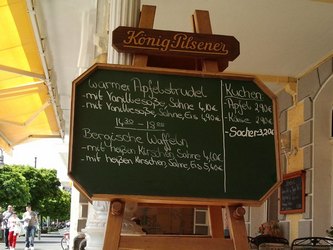 König Pilsener
Warmer Apfelstrudel
- mit Vanillesoße, Sahne 4,10€
- mit Vanillesoße, Sahne, Eis 4,90€
14:30 - 18:00
Bergische Waffeln
- mit heißen Kirschen, Sahne 4,10€
- mit heißen Kirschen, Sahne, Eis 5,40€
Kuchen
- Apfel 2,90€
- Käse 2,90€
- Sacher 3,20€